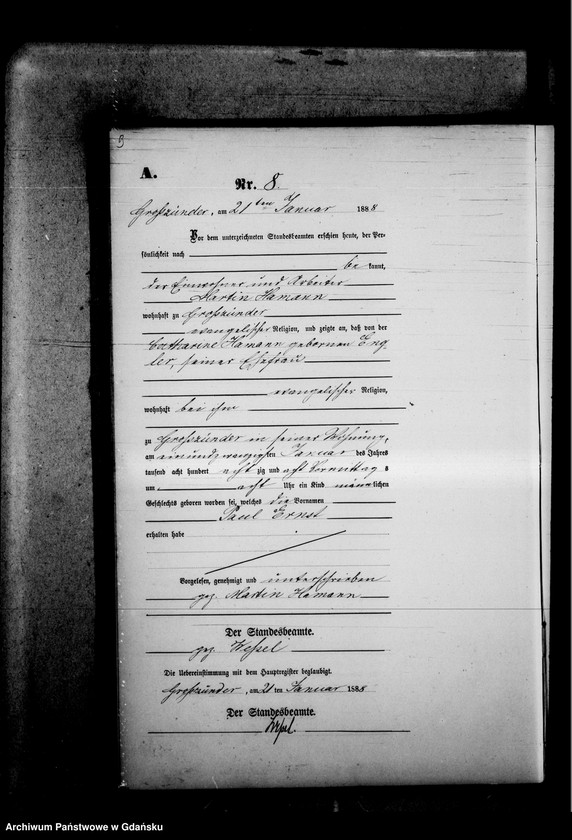 9
A.
Nr. 8.
Großzünder, am 21ten Januar 1888
Vor dem unterzeichneten Standesbeamten erschien heute, der Per-
sönlichkeit nach
be kannt,
der Einwohner und Arbeiter
Martin Hamann
wohnhaft zu Großzünder
evangelischer Religion, und zeigte an, daß von der
Catharine Hamann gebornen Eng
ler, seiner Ehefrau
evangelischer Religion,
wohnhaft bei ihm
zu Großzünder in seiner Wohnung,
am einundzwanzigsten Januar des Jahres
tausend acht hundert acht zig und acht Vormittag s
um acht Uhr ein Kind männlichen
Geschlechts geboren worden sei, welches die Vornamen
Paul Ernst
erhalten habe
Vorgelesen, genehmigt und unterschrieben
gez. Martin Hamann
Der Standesbeamte.
gez. Wessel
Die Uebereinstimmung mit dem Hauptregister beglaubigt.
Großzünder, am 21 ten Januar 1888
Der Standesbeamte.
Wessel.
Archiwum Państwowe w Gdańsku